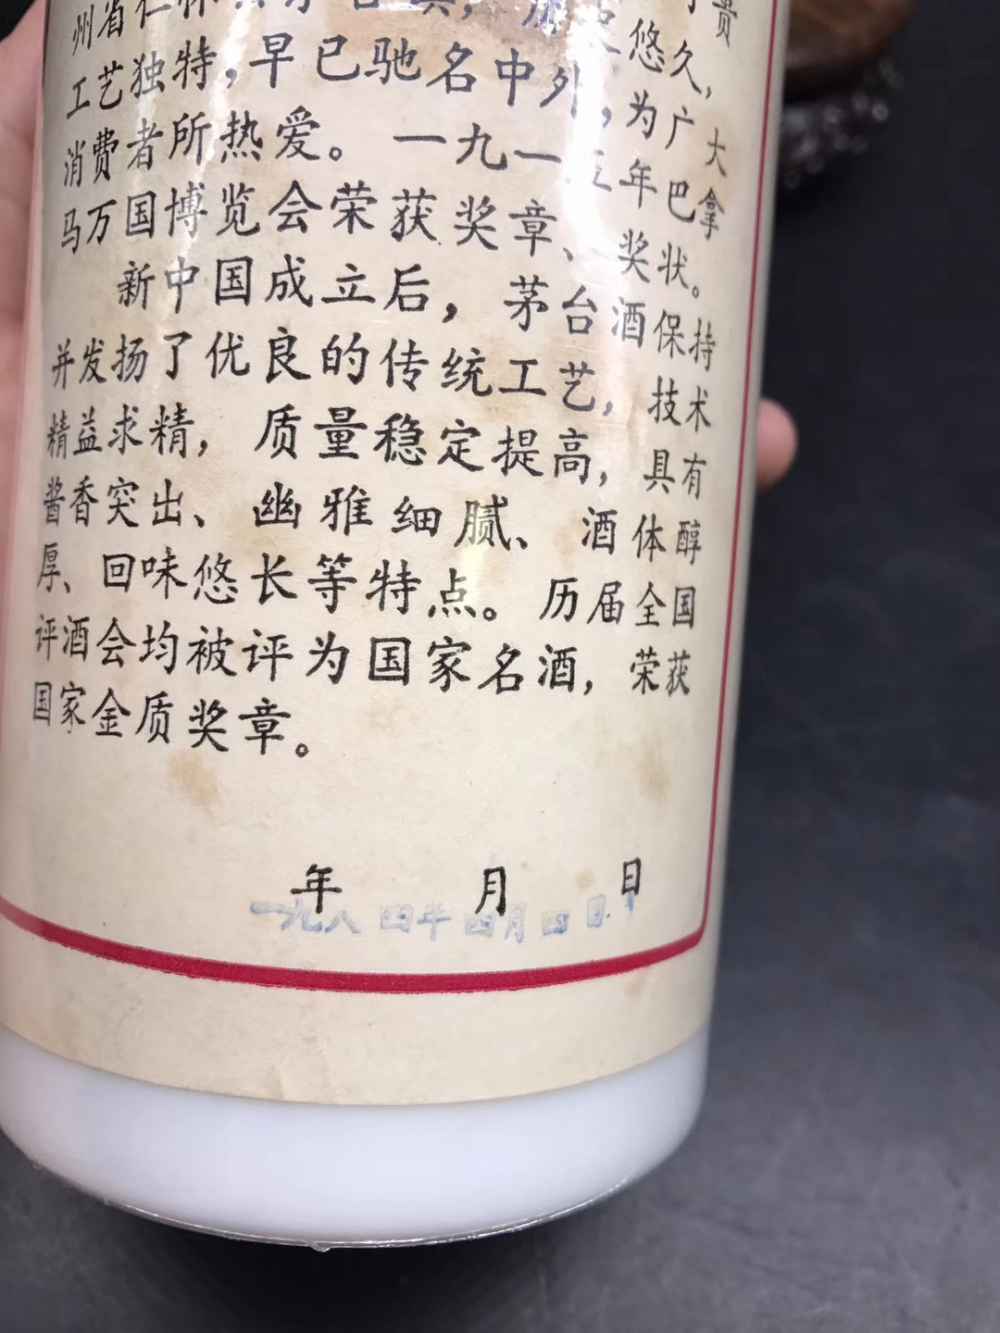 贵
州省仁怀
悠久，
工艺独特，早已驰名中外，为广大
消费者所热爱。一九一五年巴拿
马万国博览会荣获奖章、奖状。
新中国成立后，茅台酒保持
并发扬了优良的传统工艺，技术
精益求精，质量稳定提高，具有
酱香突出、幽雅细腻、酒体醇
厚、回味悠长等特点。历届全国
评酒会均被评为国家名酒，荣获
国家金质奖章。
年 月 日
一九八四年四月四日